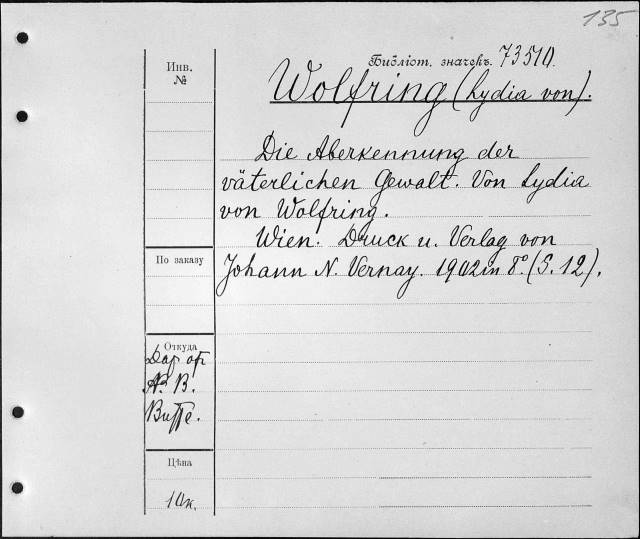 135
Инв.
№
Библіот. значекъ. 73510
Wolfring (Lydia von).
Die Aberkennung der
väterlichen Gewalt. Von Lydia
von Wolfring.
Wien. Druck u. Verlag von
Johann N. Vernay. 1902 in 8°. (S. 12).
По заказу
Откуда
Дар
В.
Цѣна
10 к.